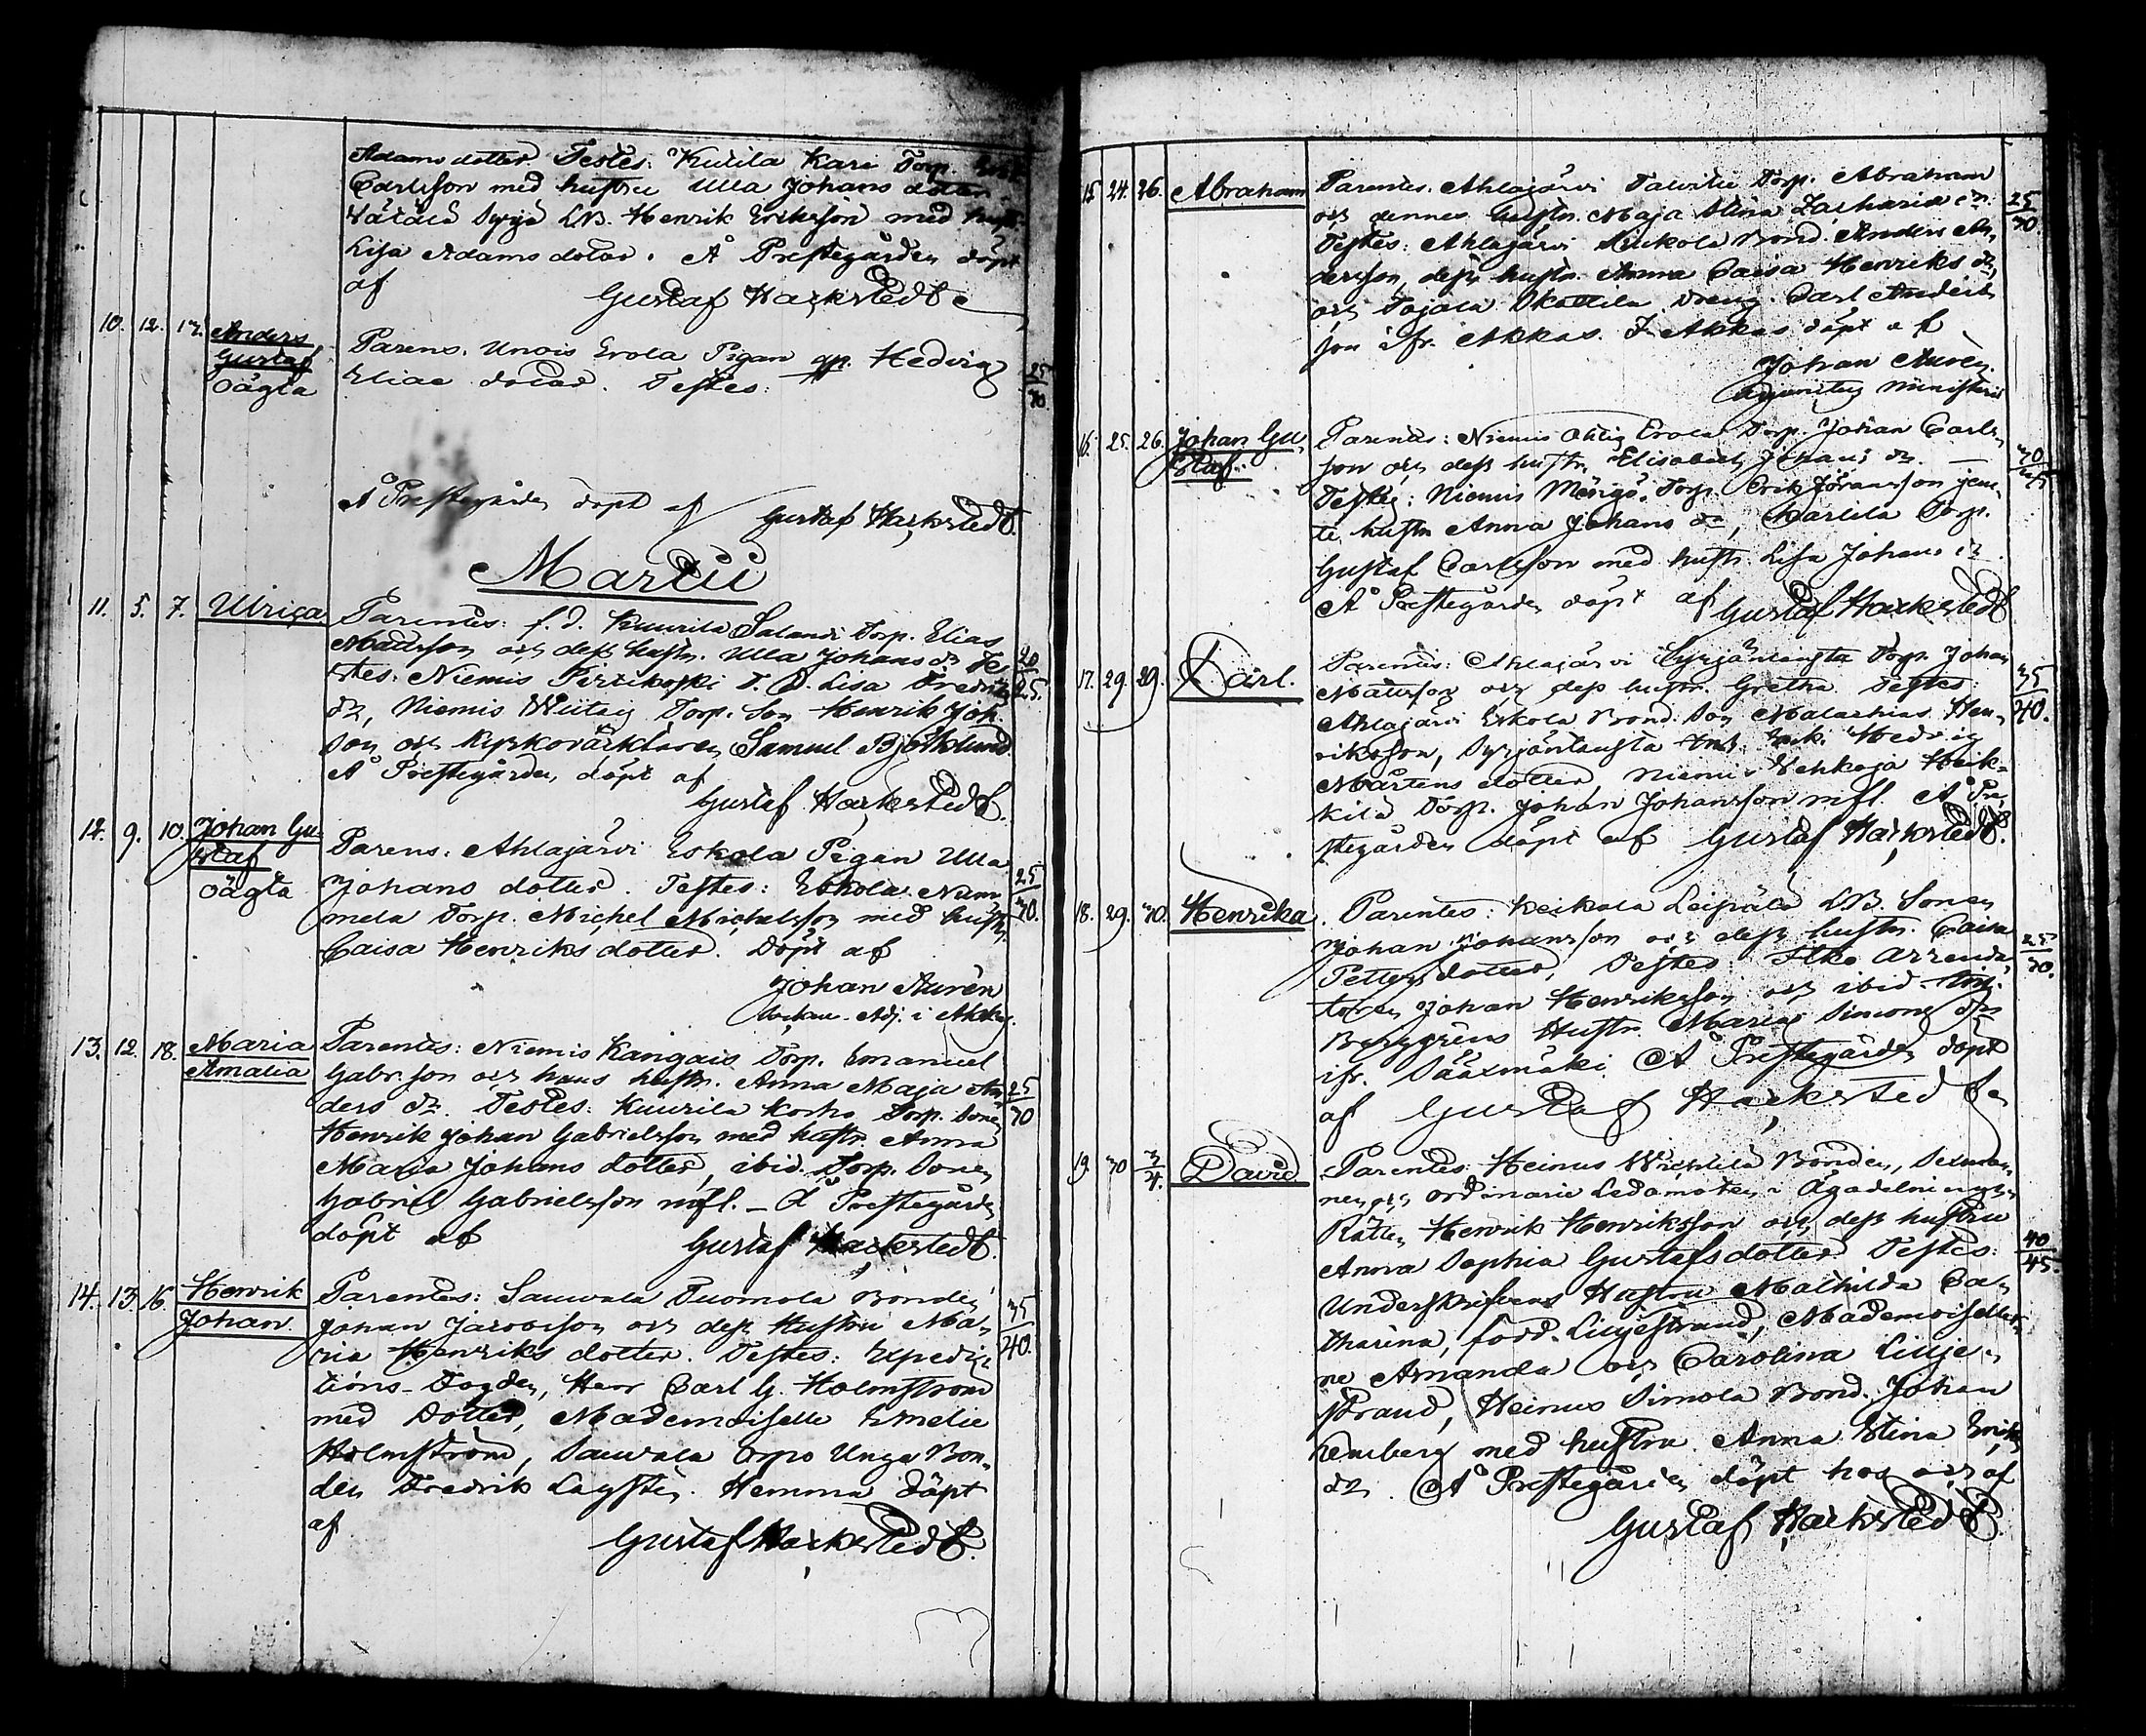 Adams dotter. Testes: Kurila Kari Torp.
Carlsson med hustru Ulla Johans dotter.
LB. Henrik Eriksson med hust.
Lisa Adams dotter. Å Prestegården döpt
af Gustaf Hackstedt
10. 12. 17. Anders Gustaf oägta
Parens. Unois Erola Pigan Hedvig 25/30
Eliae dotter. Testes:
Å Prestegården döpt af Gustaf Hackstedt.
Martii
11. 5. 7. Ulrica Parentes: f.d. Kuurila Salandi Torp. Elias
Mattsson och dess hustr. Ulla Johans dr Te- 20/25.
stes: Niemis Pirtikoski T. D. Lisa Fredriks
dr, Niemis Torp. Son Henrik Joh.
Son och Kyrkovärktaren Samuel Björklund.
Å Prestegården döpt af
Gustaf Hackstedt.
12. 9. 10. Johan Gu-
staf
oägta
Parens: Ahlajärvi Eskola Pigan Ulla
Johans dotter. Testes: Eskola Num- 25/30.
mela Torp. Michel Michelsson med hustr.
Caisa Henriks dotter. Döpt af
Johan Aurén
Adj. i Akkas.
13. 12. 18. Maria
Amalia
Parentes: Niemis Kangais Torp. Emanuel
Gabr.son och hans hustr. Anna Maja An- 25/30
ders dr. Testes: Kuurila Torp. Sonen
Henrik Johan Gabrielsson med hustr. Anna
Maria Johans dotter, ibid. Torp. Sonen
Gabriel Gabrielsson mfl. Å Prestegården
döpt af Gustaf Hackstedt.
14. 13. 16. Henrik
Johan.
Parentes: Sauvala Tuomola Bonden
Johan Jacobsson och dess Hustru Ma- 35/40.
ria Henriks dotter. Testes: Expedi-
tions-Fogden, Herr Carl G. Holmström
med Dotter, Mademoiselle Emelie
Holmström, Sauvala Erpo Unga Bon-
den Fredrik Lagsten. Hemma döpt
af Gustaf Hackstedt.
15. 24. 26. Abraham Parentes. Ahlajärvi Torp. Abraham
och dennes hustr. Maja Stina Zacharie dr. 25/30
Testes: Ahlajärvi Bond. Anders An-
dersson, dess hustr. Anna Caisa Henriks dr,
och Dräng. Carl Anders
son ifr. Akkas. I Akkas döpt af
Johan Aurén.
Adjunctus Ministerii
16. 25. 26. Johan Gu-
staf.
Parentes: Niemis Erola Torp. Johan Carls-
son och dess hustr. Elisabeth Johans dr.
Testes: Niemis Torp. Erik Göransson jem-
te hustr. Anna Johans dr, Torp.
Gustaf Carlsson med hustr. Lisa Johans dr.
Å Prestegården döpt af Gustaf Hackstedt
17. 29. 29. Carl. Parentes: Ahlajärvi Syrjäntausta Torp. Johan
Mattsson och dess hustr. Gretha. Testes: 35/40.
Ahlajärvi Eskola Bond. Son Malachias Hen-
riksson, Syrjäntausta Hedvig
Mårtens dotter, Niemis Vehkoja Heik-
kilä Torp. Johan Johansson mfl. Å Pre-
stegården döpt af Gustaf Hackstedt.
18. 29. 30. Henrika. Parentes: Keikala Leipälä LB. Sonen
Johan Johansson och dess hustr. Caisa
Petters dotter, Testes: Arrenda- 25/30.
toren Johan Henriksson och ibid.
Berggrens Hustr. Maria Simons dr
ifr. Sääxmäki. Å Prestegården döpt
af Gustaf Hackstedt
19. 30 3/4. David. Parentes: Heinus Bonden, Sexman-
nen och ordinarie Ledamoten i Ägodelnings
Rätten Henrik Henriksson och dess hustru
Anna Sophia Gustafsdotter. Testes: 40/45.
Underskrifvens Hustru Mathilda Ca-
tharina, född Liljestrand, Mademoiseller-
ne Amanda och Carolina Lilje-
strand, Heinus Simola Bond. Johan
med hustru Anna Stina Eriks
dr. Å Prestegården döpt hos och af
Gustaf Hackstedt.